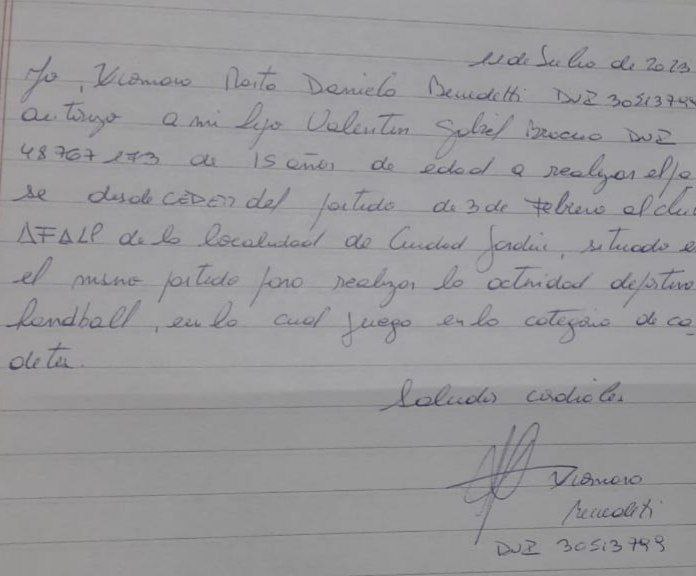 11 de Julio de 2023
Yo, Xiomara Daniela Benedetti DNI 30513799
autorizo a mi hijo Valentin DNI
48767173 de 15 años de edad a realizar el pa
se desde CEDEM del partido de 3 de Febrero al clu
AFALP de la localidad de Ciudad Jardín, situado e
el mismo partido para realizar la actividad deportiva
handball, en la cual juega en la categoria de ca
detes.
Saludos cordiales
Xiomara
Benedetti
DNI 30513799